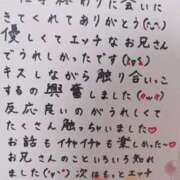 きてくれてありがとう(^^)
優しくてエッチなお兄さん
でうれしかったです(^^)
キスしながら触り合いっこ
するの興奮しました(^^)
反応良いのがうれしくて
たくさん触っちゃいました♥
お話もイチャイチャも楽しかった~♥
お兄さんのこといろいろ知れ
ました(°▽°)次はもっとエッチ